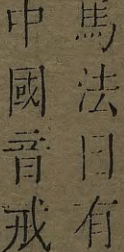 馬法曰有
中國音戒